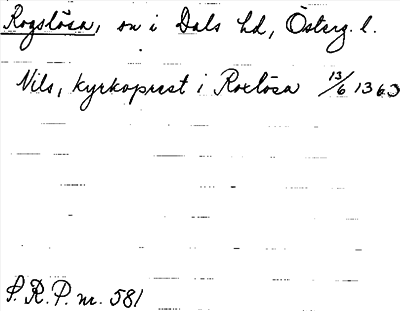 Rogslösa, sn i Dals hd, Österg. l.
Nils, kyrkoprest i Roxlösa 13/6 1363
S. R. P. nr. 581